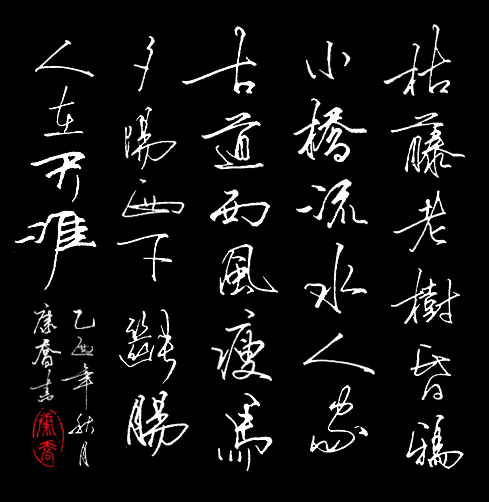 枯藤老樹昏鴉
小橋流水人家
古道西風瘦馬
夕陽西下斷腸
人在天涯
乙酉年秋月
康喬書
康喬